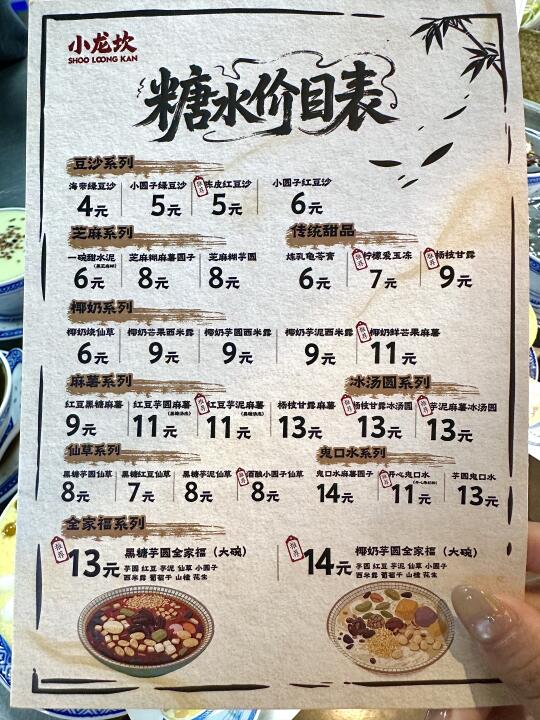 小龙坎
SHOO LOONG KAN
糖水价目表
豆沙系列
海带绿豆沙 小圆子绿豆沙 推荐 陈皮红豆沙 小圆子红豆沙
4元 5元 5元 6元
芝麻系列 传统甜品
一碗甜水泥 芝麻糊麻薯圆子 芝麻糊芋圆 炼乳龟苓膏 推荐 柠檬爱玉冻 推荐 杨枝甘露
6元 8元 8元 6元 7元 9元
椰奶系列
椰奶烧仙草 椰奶芒果西米露 椰奶芋圆西米露 椰奶芋泥西米露 推荐 椰奶鲜芒果麻薯
6元 9元 9元 9元 11元
麻薯系列 冰汤圆系列
红豆黑糖麻薯 红豆芋圆麻薯 推荐 红豆芋泥麻薯 杨枝甘露麻薯 推荐 杨枝甘露冰汤圆 推荐 芋泥麻薯冰汤圆
9元 11元 11元 13元 13元 13元
仙草系列 鬼口水系列
黑糖芋圆仙草 黑糖红豆仙草 黑糖芋泥仙草 推荐 酒酿小圆子仙草 鬼口水麻薯圆子 推荐 开心鬼口水 芋圆鬼口水
8元 7元 8元 8元 14元 11元 13元
全家福系列
推荐 13元 黑糖芋圆全家福（大碗） 推荐 14元 椰奶芋圆全家福（大碗）
芋圆 红豆 芋泥 仙草 小圆子 芋圆 红豆 芋泥 仙草 小圆子
西米露 葡萄干 山楂 花生 西米露 葡萄干 山楂 花生